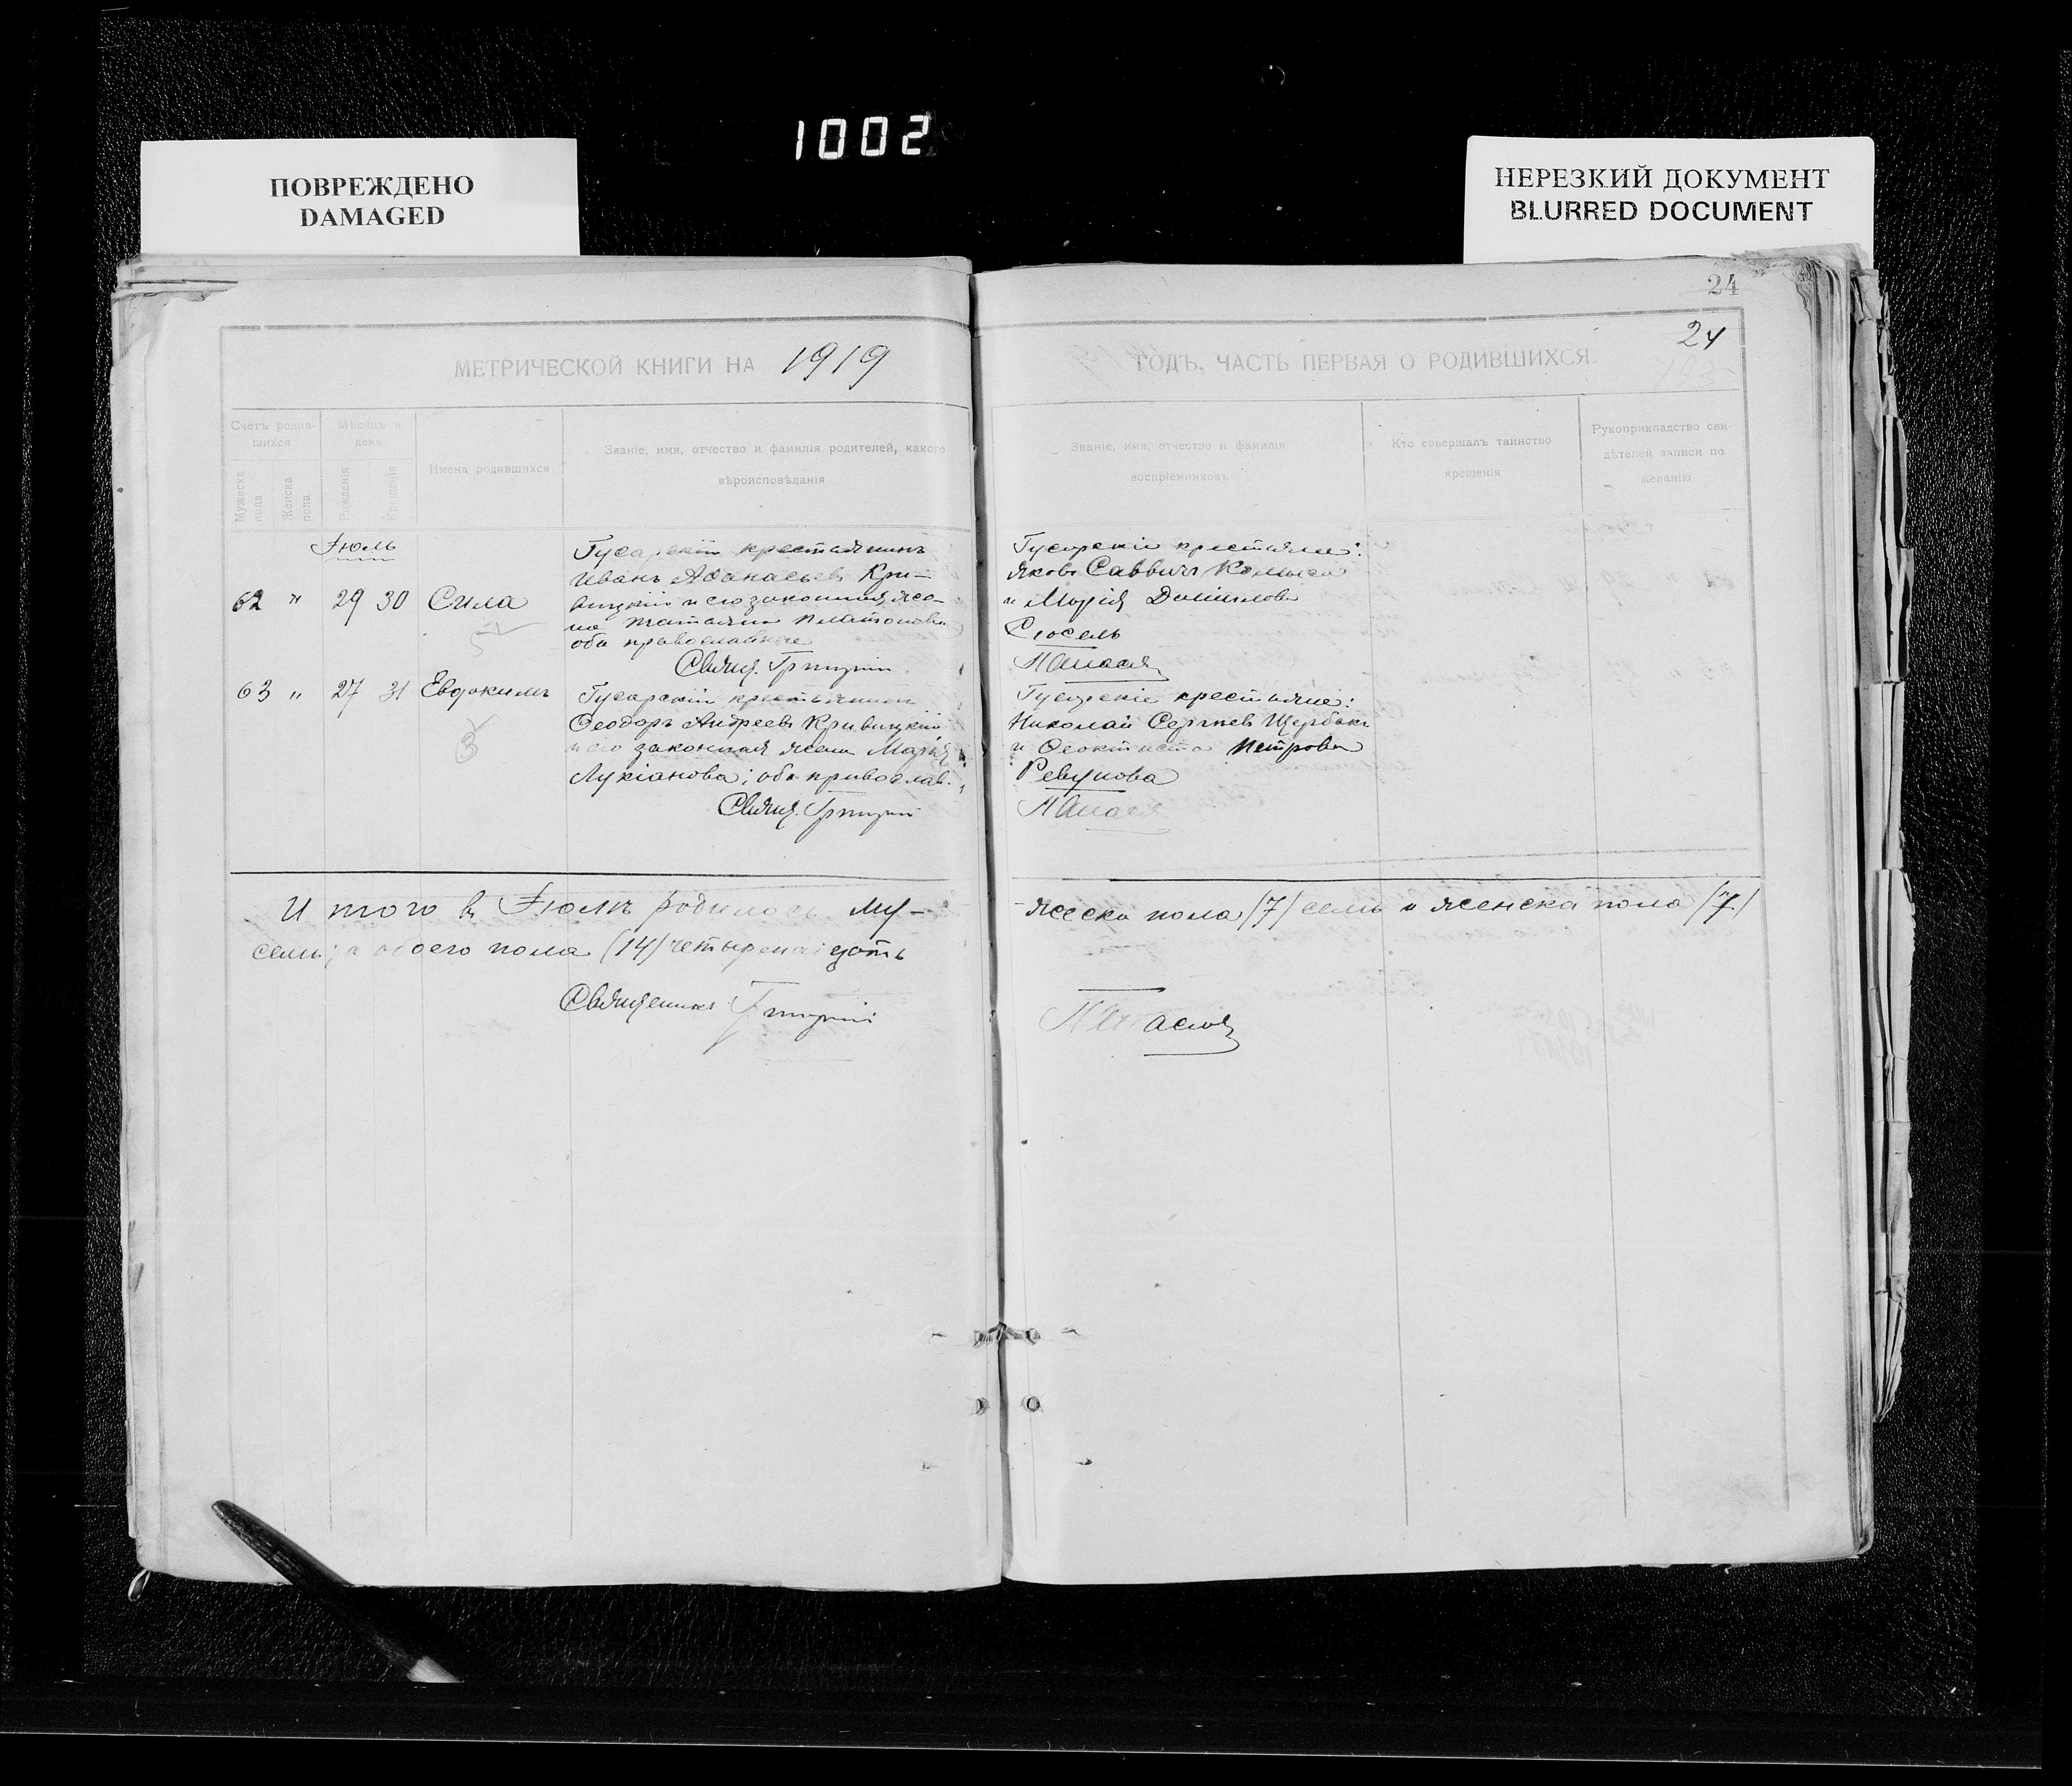 1002
ПОВРЕЖДЕНО
DAMAGED
НЕРЕЗКИЙ ДОКУМЕНТ
BLURRED DOCUMENT
24
24
МЕТРИЧЕСКОЙ КНИГИ НА 1919
ГОДЪ, ЧАСТЬ ПЕРВАЯ О РОДИВШИХСЯ.
Счетъ родив-
шихся
Мужеска пола
Женска пола
Мѣсяцъ и
день
Рожденія
Крещенія
Имена родившихся
Званіе, имя, отчество и фамилія родителей, какого
вѣроисповѣданія
Званіе, имя, отчество и фамилія
воспріемниковъ
Кто совершалъ таинство
крещенія
Рукоприкладство сви-
дѣтелей записи по
желанію
Іюль
62 " 29 30 Сила
Гусарскій крестьянинъ
Иванъ Аѳанасьевъ Кри-
вицкій и его законная же-
на Татьяна Платонова
оба православные
Свящ. Грицкій
Гусарскіе крестьяне:
Яковъ Саввичъ
и Марія Данилова
63 " 27 31 Евдокимъ
3
Гусарскій крестьянинъ
Ѳеодоръ Андреевъ Кривицкій
и его законная жена Марія
Лукіанова; оба православ.
Свящ. Грицкій
Гусарскіе крестьяне:
Николай Сергѣевъ Щербакъ
и Ѳеоктиста Петрова
Ревунова
И того въ Іюлѣ родилось му-
жеска пола (7) семь и женска пола (7)
семь; а обоего пола (14) четыренадцать
Священникъ Грицкій